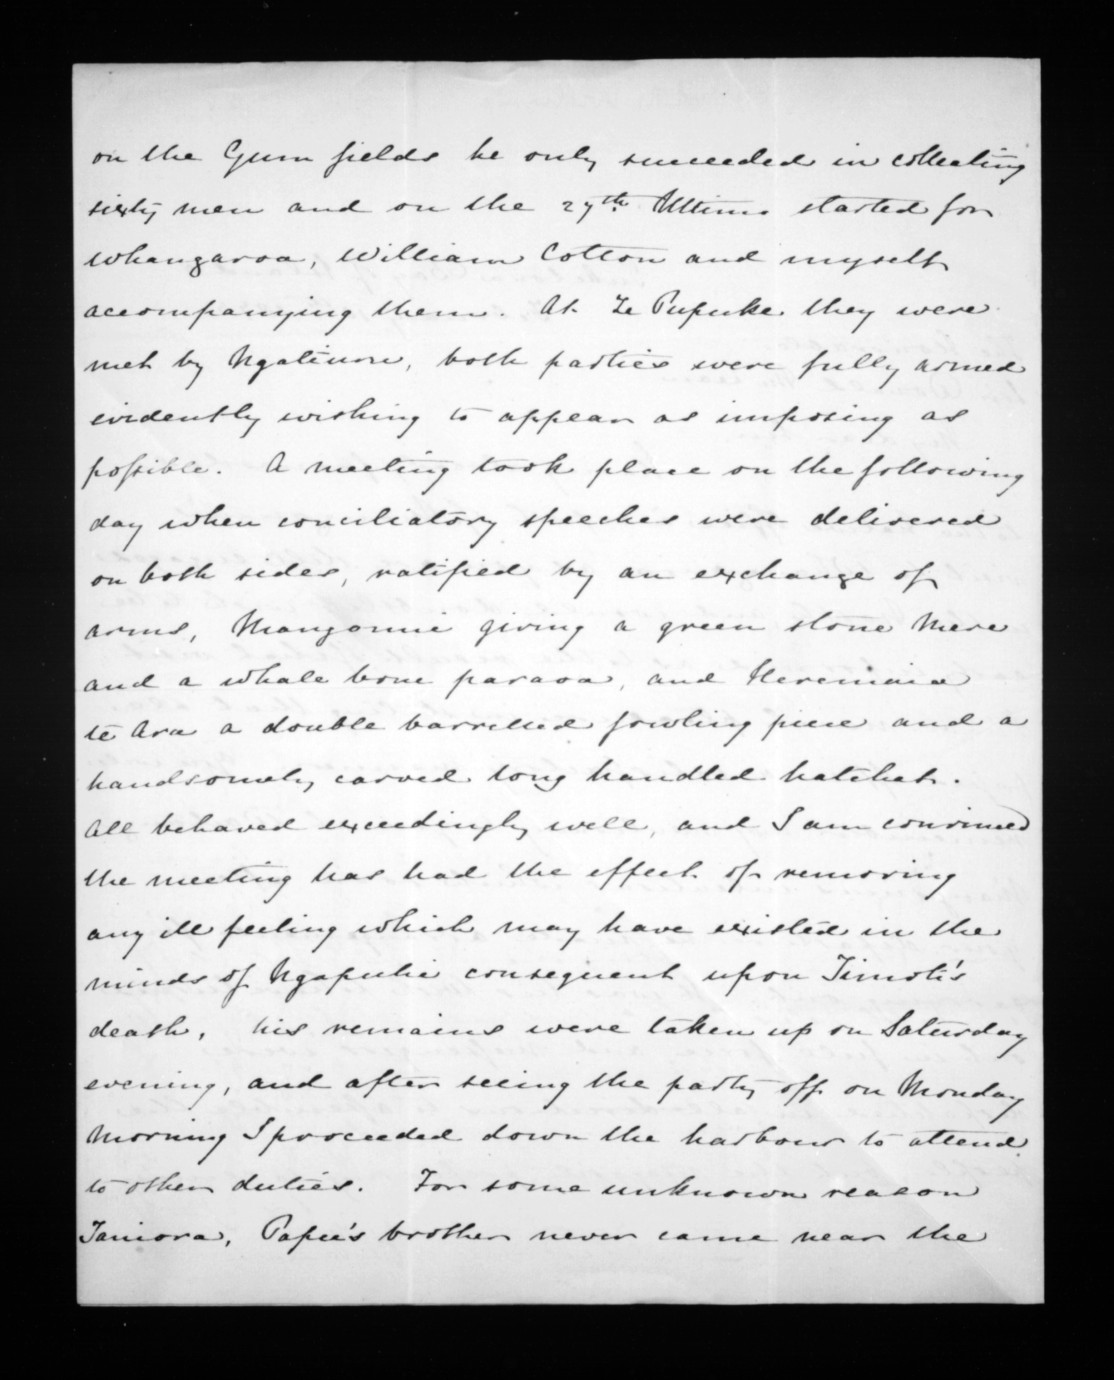 on the Gum fields he only succeeded in collecting
sixty men and on the 27th Ultimo started for
Whangaroa, William Cotton and myself
accompanying them. At Te Pupuke they were
met by Ngatiuru, both parties were fully armed
evidently wishing to appear as imposing as
possible. A meeting took place on the following
day when conciliatory speeches were delivered
on both sides, ratified by an exchange of
arms, Mangonui giving a green stone Mere
and a whale bone paraoa, and Heremaia
te Ara a double barrelled fowling piece and a
handsomely carved long handled hatchet.
All behaved exceedingly well, and I am convinced
the meeting has had the effect of removing
any ill feeling which may have existed in the
minds of Ngapuhi consequent upon Timoti's
death, his remains were taken up on Saturday
evening, and after seeing the party off on Monday
Morning I proceeded down the harbour to attend
to other duties. For some unknown reason
Taniora, Papu's brother never came near the